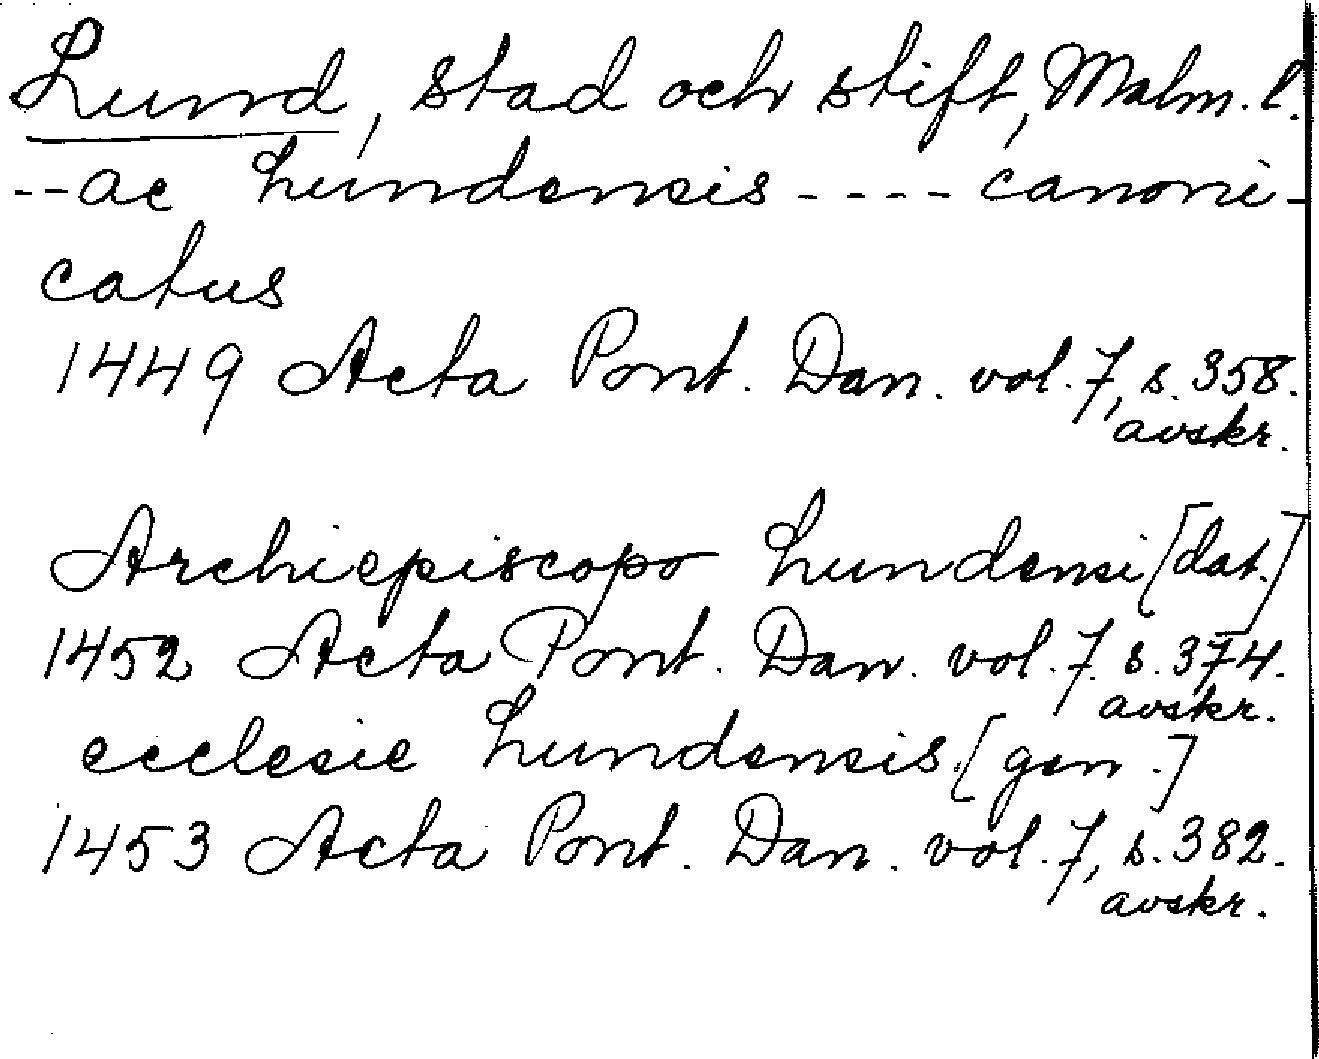 Lund, stad och stift, Malm. l.
--ac Lundensis ---- canoni-
catus
1449 Acta Pont. Dan. vol. 7, s. 358.
avskr.
Archiepiscopo Lundensi [dat.]
1452 Acta Pont. Dan. vol. 7. s. 374.
avskr.
ecclesie Lundensis. [gen.]
1453 Acta Pont. Dan. vol. 7, s. 382.
avskr.